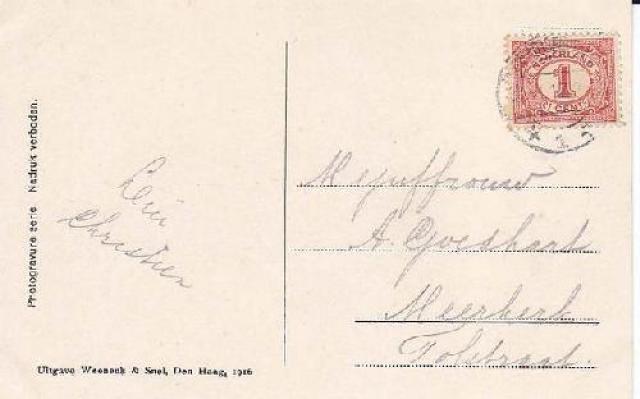 Photogravure serie Nadruk verboden.
Lein
Christien
Uitgave Weenenk & Snel, Den Haag, 1916
NEDERLAND
1
CENT
1
Mejuffrouw
A. Goeshart
Meerkerk
Tolstraat.